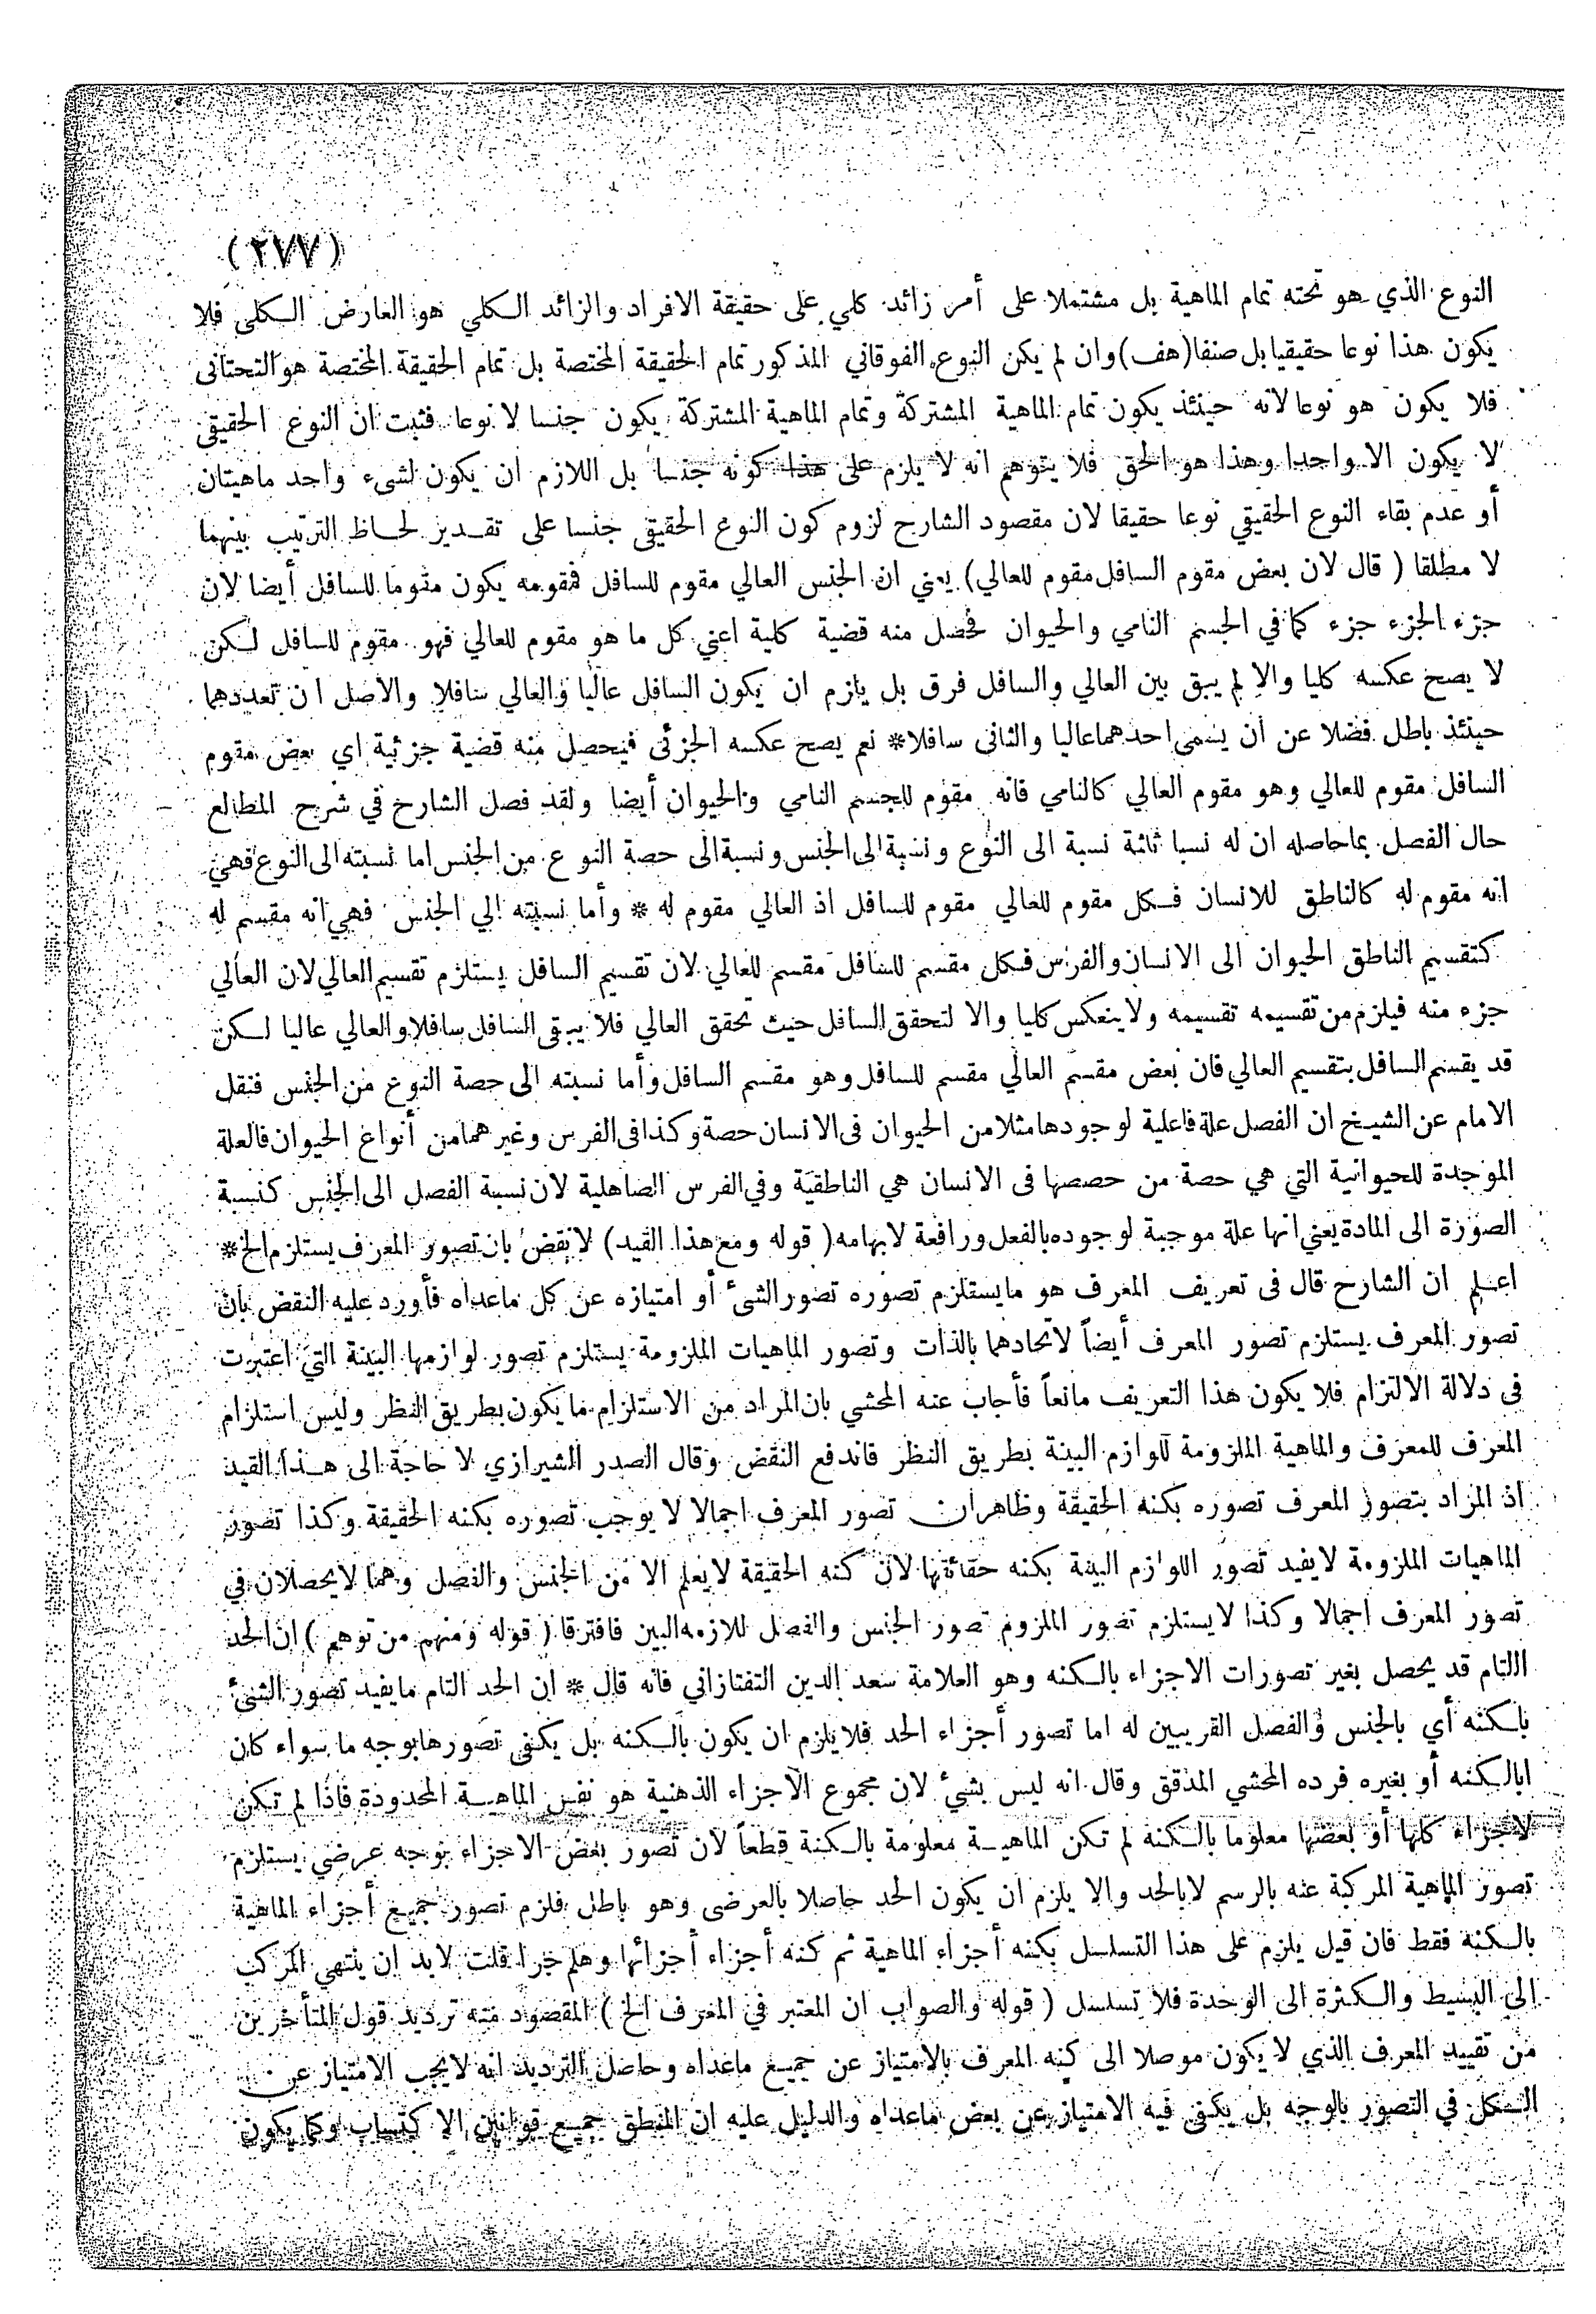 (٢٧٧)
النوع الذي هو تحته تمام الماهية بل مشتملا على أمر زائد كلي على حقيقة الافراد والزائد الكلي هو العارض الكلى فلا
يكون هذا نوعا حقيقيا بل صنفا (هف) وان لم يكن النوع الفوقاني المذكور تمام الحقيقة المختصة بل تمام الحقيقة المختصة هو التحتانى
فلا يكون هو نوعا لانه حينئذ يكون تمام الماهية المشتركة وتمام الماهية المشتركة يكون جنسا لا نوعا فثبت ان النوع الحقيقى
لا يكون الا واحدا وهذا هو الحق فلا يتوهم انه لا يلزم على هذا كونه جنسا بل اللازم ان يكون لشىء واحد ماهيتان
أو عدم بقاء النوع الحقيقي نوعا حقيقا لان مقصود الشارح لزوم كون النوع الحقيقى جنسا على تقدير لحاظ الترتيب بينهما
لا مطلقا ( قال لان بعض مقوم السافل مقوم للعالي ) يعني ان الجنس العالي مقوم للسافل فمقومه يكون مقوما للسافل أيضا لان
جزء الجزء جزء كما في الجسم النامي والحيوان فحصل منه قضية كلية اعني كل ما هو مقوم للعالي فهو مقوم للسافل لكن
لا يصح عكسه كليا والا لم يبق بين العالي والسافل فرق بل يلزم ان يكون السافل عاليا والعالي سافلا والاصل ان تعددهما
حينئذ باطل فضلا عن ان يسمى احدهما عاليا والثانى سافلا * نعم يصح عكسه الجزئى فيحصل منه قضية جزئية اي بعض مقوم
السافل مقوم للعالي وهو مقوم العالي كالنامي فانه مقوم للجسم النامي والحيوان أيضا ولقد فصل الشارح في شرح المطالع
حال الفصل بما حاصله ان له نسبا ثلثة نسبة الى النوع ونسبة الى الجنس ونسبة الى حصة النوع من الجنس اما نسبته الى النوع فهي
انه مقوم له كالناطق للانسان فكل مقوم للعالي مقوم للسافل اذ العالي مقوم له * وأما نسبته الي الجنس فهي انه مقسم له
كتقسيم الناطق الحيوان الى الانسان والفرس فكل مقسم للسافل مقسم للعالي لان تقسيم السافل يستلزم تقسيم العالي لان العالي
جزء منه فيلزم من تقسيمه تقسيمه ولا ينعكس كليا والا لتحقق السافل حيث تحقق العالي فلا يبقى السافل سافلا والعالي عاليا لكن
قد يقسم السافل بتقسيم العالي فان بعض مقسم العالي مقسم للسافل وهو مقسم السافل وأما نسبته الى حصة النوع من الجنس فنقل
الامام عن الشيخ ان الفصل علة فاعلية لوجودها مثلا من الحيوان فى الانسان حصة وكذا فى الفرس وغيرهما من أنواع الحيوان فالعلة
الموجدة للحيوانية التي هي حصة من حصصها فى الانسان هي الناطقية وفي الفرس الصاهلية لان نسبة الفصل الى الجنس كنسبة
الصورة الى المادة يعني انها علة موجبة لوجوده بالفعل ورافعة لابهامه ( قوله ومع هذا القيد ) لا نقض بان تصور المعرف يستلزم الخ *
اعلم ان الشارح قال فى تعريف المعرف هو ما يستلزم تصوره تصور الشئ أو امتيازه عن كل ماعداه فأورد عليه النقض بان
تصور المعرف يستلزم تصور المعرف أيضاً لاتحادهما بالذات وتصور الماهيات الملزومة يستلزم تصور لوازمها البينة التي اعتبرت
فى دلالة الالتزام فلا يكون هذا التعريف مانعاً فأجاب عنه المحشي بان المراد من الاستلزام ما يكون بطريق النظر وليس استلزام
المعرف للمعرف والماهية الملزومة للوازم البينة بطريق النظر فاندفع النقض وقال الصدر الشيرازي لا حاجة الى هذا القيد
اذ المراد بتصور المعرف تصوره بكنه الحقيقة وظاهر ان تصور المعرف اجمالا لا يوجب تصوره بكنه الحقيقة وكذا تصور
الماهيات الملزومة لا يفيد تصور اللوازم البينة بكنه حقائقها لان كنه الحقيقة لا يعلم الا من الجنس والفصل وهما لا يحصلان في
تصور المعرف اجمالا وكذا لا يستلزم تصور الملزوم تصور الجنس والفصل للازمه البين فافترقا ( قوله ومنهم من توهم ) ان الحد
االتام قد يحصل بغير تصورات الاجزاء بالكنه وهو العلامة سعد الدين التفتازاني فانه قال * ان الحد التام ما يفيد تصور الشئ
بالكنه أي بالجنس والفصل القريبين له اما تصور أجزاء الحد فلا يلزم ان يكون بالكنه بل يكفى تصورها بوجه ما سواء كان
ابالكنه أو بغيره فرده المحشي المدقق وقال انه ليس بشئ لان مجموع الاجزاء الذهنية هو نفس الماهية المحدودة فاذا لم تكن
لاجزاء كلها أو بعضها معلوما بالكنه لم تكن الماهية معلومة بالكنة قطعاً لان تصور بعض الاجزاء بوجه عرضي يستلزم
تصور الماهية المركبة عنه بالرسم لا بالحد والا يلزم ان يكون الحد حاصلا بالعرضى وهو باطل فلزم تصور جميع أجزاء الماهية
بالكنه فقط فان قيل يلزم على هذا التسلسل بكنه أجزاء الماهية ثم كنه أجزاء أجزائها وهلم جرا قلت لابد ان ينتهي المركب
الي البسيط والكثرة الى الوحدة فلا تسلسل ( قوله والصواب ان المعتبر في المعرف الخ ) المقصود منه ترديد قول المتأخرين
من تقييد المعرف الذي لا يكون موصلا الى كنه المعرف بالامتياز عن جميع ماعداه وحاصل الترديد انه لا يجب الامتياز عن
الكل في التصور بالوجه بل يكفى فيه الامتياز عن بعض ماعداه والدليل عليه ان المنطق جميع قوانين الاكتساب وكما يكون